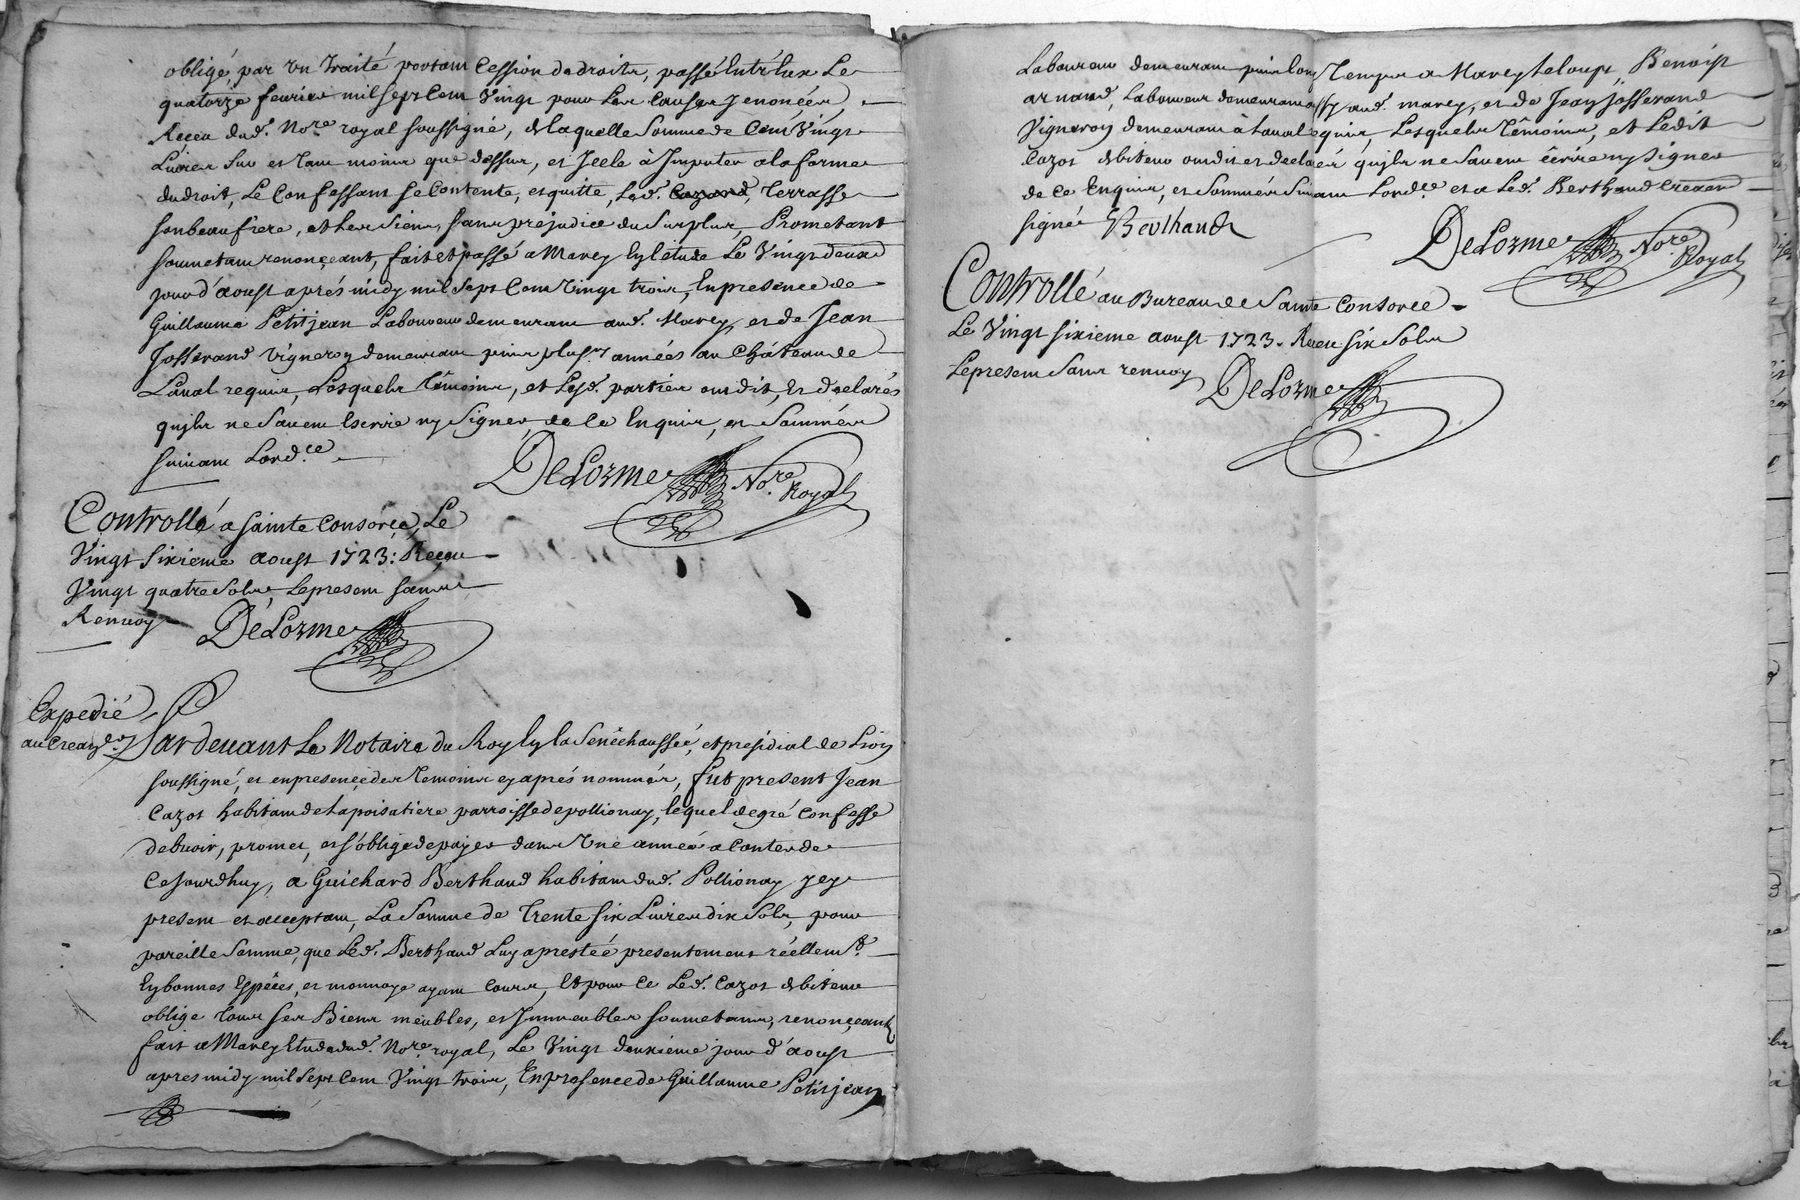 obligé, par un traité portant Cession de droits, passé Entr'eux Le
quatorze feurier mil sept Cent Vingt pour Les Causes y enoncées,
Receu dud. No.re royal soussigné, de laquelle Somme de Cent Vingt
Liures Sur et tant moins que dessus, et Icele à Imputer a la forme
du droit, Le Confessant se Contente, et quitte, Led. Terrasse
son beau frere, et Les Siens, sans préjudice du Surplus, Prometant
soumetant renonçeant, fait et passé a Marcy Ey létude Le Vingt deux
jour d'aoust aprés midy mil Sept Cent Vingt trois, En presence de
Guillaume Petitjean Laboureur demeurant aud. Marcy, et de Jean
Josserand Vigneroy demeurant puis plus.rs années au Château de
Laual requis, Lesquels têmoins, et Lesd. parties ont dit, Et declarés
qu'jls ne Sauent Escrire ny Signer, de Ce Enquis, et Sommés
suiuant Lord.ce
DeLorme No.re Royal
Controllé a Sainte Consorce, Le
Vingt Sixieme aoust 1723: Receu
Vingt quatre Sols, Le present sans
Renuoy
DeLorme
Expedié
au Creanc.er
Pardeuant Le Notaire du Roy Ey la Senêchaussée, et presidial de Lioy
soussigné, et en presence des temoins cy aprés nommés, fut present Jean
Cazot habitant de Lapoisatiere parroisse de pollionay, lequel de gré Confesse
debuoir, promet, et s'oblige de payer dans Une année a Conter de
Cejourdhuy, a Guichard Berthaud habitant dud. Pollionay ycy
present et acceptant, La Somme de Trente six Liures dix Sols, pour
pareille Somme, que Led. Berthaud Luy a prestée presentement réellem.t
Ey bonnes Espêces, et monnoye ayant Cours, Et pour Ce Led. Cazot debiteur
oblige tous ses Biens meubles, et Immeubles soumetant, renonçeant
fait a Marcy Etude dud. No.re royal, Le Vingt deuxiéme jour d'aoust
apres midy mil Sept Cent Vingt trois, En presence de Guillaume Petitjean
Laboureur demeurant puis long Temps a Marcy Leloup, Benoist
arnaud, Laboureur demeurant aussy aud. marcy, et de Jean Josserand
Vigneroy demeurant à Laual requis, Lesquels têmoins, et Ledit
Cazot debiteur ont dit et declaré qu'jls ne Sauent êcrire ny Signer
de Ce Enquis, et Sommés Suiuant Lord.ce et a Led. Berthaud Creancier
signé Berthaud
DeLorme No.re Royal
Controllé au Bureau de Sainte Consorce
Le Vingt sixieme aoust 1723. Receu six Sols
Le present Sans renuoy DeLorme